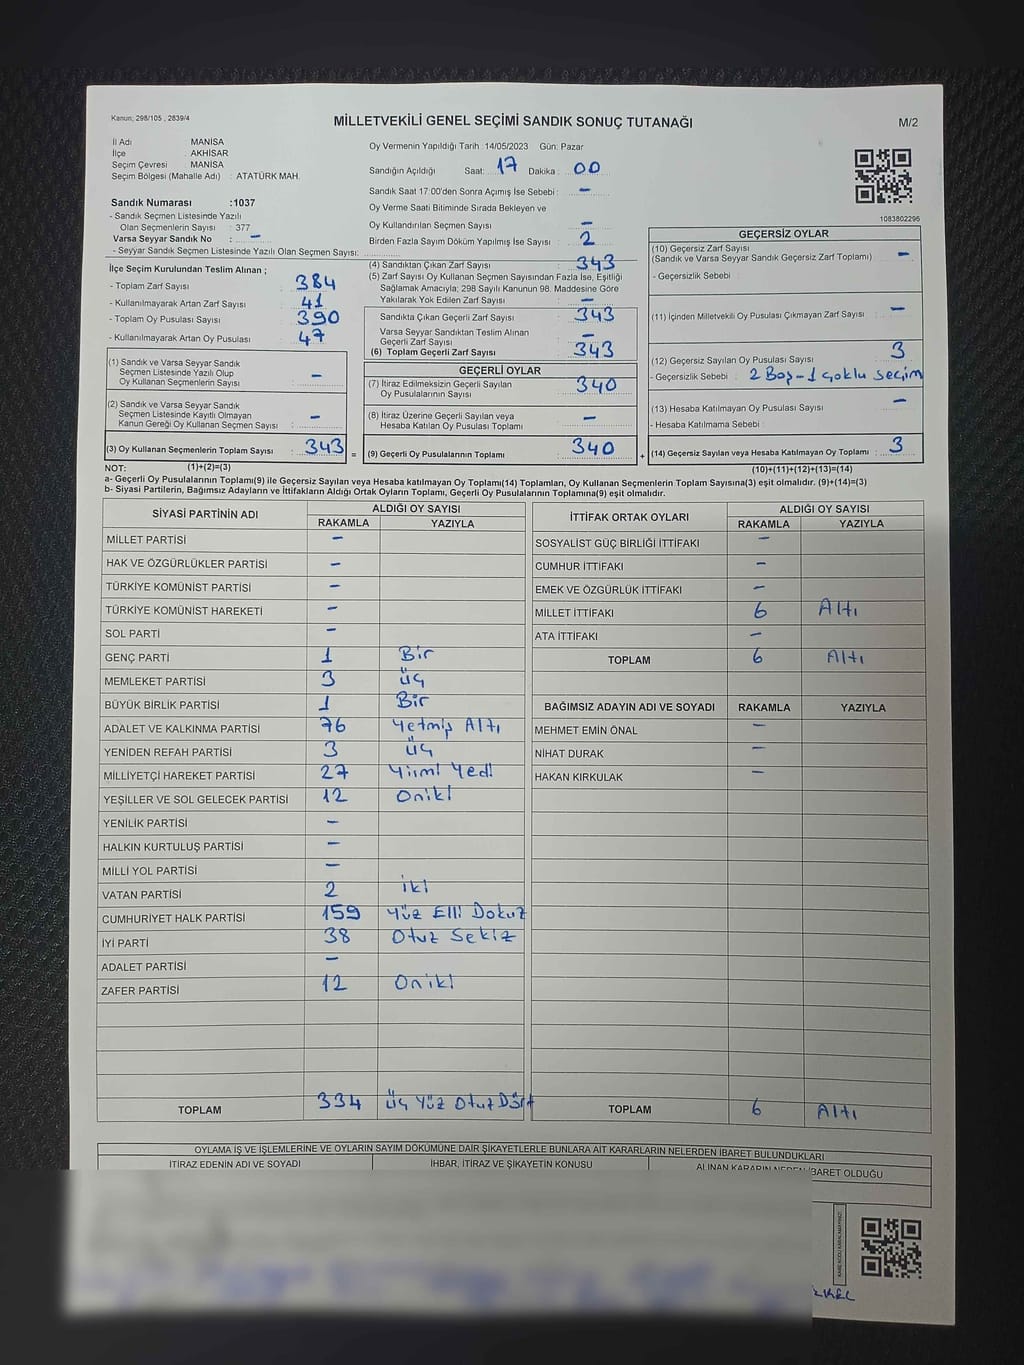 Kanun; 298/105 , 2839/4
MİLLETVEKİLİ GENEL SEÇİMİ SANDIK SONUÇ TUTANAĞI
M/2
İl Adı MANİSA
İlçe AKHİSAR
Seçim Çevresi MANİSA
Seçim Bölgesi (Mahalle Adı) : ATATÜRK MAH.
Sandık Numarası :1037
- Sandık Seçmen Listesinde Yazılı
Olan Seçmenlerin Sayısı : 377
Varsa Seyyar Sandık No : –
- Seyyar Sandık Seçmen Listesinde Yazılı Olan Seçmen Sayısı:
Oy Vermenin Yapıldığı Tarih :14/05/2023 Gün: Pazar
Sandığın Açıldığı Saat: 17 Dakika : 00
Sandık Saat 17:00'den Sonra Açımış İse Sebebi : –
Oy Verme Saati Bitiminde Sırada Bekleyen ve
Oy Kullandırılan Seçmen Sayısı : –
Birden Fazla Sayım Döküm Yapılmış İse Sayısı : 2
1083802296
İlçe Seçim Kurulundan Teslim Alınan ;
- Toplam Zarf Sayısı : 384
- Kullanılmayarak Artan Zarf Sayısı : 41
- Toplam Oy Pusulası Sayısı : 390
- Kullanılmayarak Artan Oy Pusulası : 47
(1) Sandık ve Varsa Seyyar Sandık
Seçmen Listesinde Yazılı Olup
Oy Kullanan Seçmenlerin Sayısı : –
(2) Sandık ve Varsa Seyyar Sandık
Seçmen Listesinde Kayıtlı Olmayan
Kanun Gereği Oy Kullanan Seçmen Sayısı : –
(3) Oy Kullanan Seçmenlerin Toplam Sayısı : 343 =
(4) Sandıktan Çıkan Zarf Sayısı : 343
(5) Zarf Sayısı Oy Kullanan Seçmen Sayısından Fazla İse, Eşitliği
Sağlamak Amacıyla; 298 Sayılı Kanunun 98. Maddesine Göre
Yakılarak Yok Edilen Zarf Sayısı : –
Sandıkta Çıkan Geçerli Zarf Sayısı : 343
Varsa Seyyar Sandıktan Teslim Alınan
Geçerli Zarf Sayısı : –
(6) Toplam Geçerli Zarf Sayısı : 343
GEÇERLİ OYLAR
(7) İtiraz Edilmeksizin Geçerli Sayılan
Oy Pusulalarının Sayısı : 340
(8) İtiraz Üzerine Geçerli Sayılan veya
Hesaba Katılan Oy Pusulası Toplamı : –
(9) Geçerli Oy Pusulalarının Toplamı : 340 +
GEÇERSİZ OYLAR
(10) Geçersiz Zarf Sayısı
(Sandık ve Varsa Seyyar Sandık Geçersiz Zarf Toplamı) : –
- Geçersizlik Sebebi :
(11) İçinden Milletvekili Oy Pusulası Çıkmayan Zarf Sayısı : –
(12) Geçersiz Sayılan Oy Pusulası Sayısı : 3
- Geçersizlik Sebebi : 2 Boş–1 çoklu seçim
(13) Hesaba Katılmayan Oy Pusulası Sayısı : –
- Hesaba Katılmama Sebebi :
(14) Geçersiz Sayılan veya Hesaba Katılmayan Oy Toplamı : 3
NOT: (1)+(2)=(3) (10)+(11)+(12)+(13)=(14)
a- Geçerli Oy Pusulalarının Toplamı(9) ile Geçersiz Sayılan veya Hesaba katılmayan Oy Toplamı(14) Toplamları, Oy Kullanan Seçmenlerin Toplam Sayısına(3) eşit olmalıdır. (9)+(14)=(3)
b- Siyasi Partilerin, Bağımsız Adayların ve İttifakların Aldığı Ortak Oyların Toplamı, Geçerli Oy Pusulalarının Toplamına(9) eşit olmalıdır.
SİYASİ PARTİNİN ADI ALDIĞI OY SAYISI
RAKAMLA YAZIYLA
MİLLET PARTİSİ –
HAK VE ÖZGÜRLÜKLER PARTİSİ –
TÜRKİYE KOMÜNİST PARTİSİ –
TÜRKİYE KOMÜNİST HAREKETİ –
SOL PARTİ –
GENÇ PARTİ 1 Bir
MEMLEKET PARTİSİ 3 Üç
BÜYÜK BİRLİK PARTİSİ 1 Bir
ADALET VE KALKINMA PARTİSİ 76 Yetmiş Altı
YENİDEN REFAH PARTİSİ 3 Üç
MİLLİYETÇİ HAREKET PARTİSİ 27 Yiimi Yedi
YEŞİLLER VE SOL GELECEK PARTİSİ 12 Oniki
YENİLİK PARTİSİ –
HALKIN KURTULUŞ PARTİSİ –
MİLLİ YOL PARTİSİ –
VATAN PARTİSİ 2 İki
CUMHURİYET HALK PARTİSİ 159 Yüz Elli Dokuz
İYİ PARTİ 38 Otuz Sekiz
ADALET PARTİSİ –
ZAFER PARTİSİ 12 Oniki
TOPLAM 334 Üç Yüz Otuz Dört
İTTİFAK ORTAK OYLARI ALDIĞI OY SAYISI
RAKAMLA YAZIYLA
SOSYALİST GÜÇ BİRLİĞİ İTTİFAKI –
CUMHUR İTTİFAKI –
EMEK VE ÖZGÜRLÜK İTTİFAKI –
MİLLET İTTİFAKI 6 Altı
ATA İTTİFAKI –
TOPLAM 6 Altı
BAĞIMSIZ ADAYIN ADI VE SOYADI RAKAMLA YAZIYLA
MEHMET EMİN ÖNAL –
NİHAT DURAK –
HAKAN KIRKULAK –
TOPLAM 6 Altı
OYLAMA İŞ VE İŞLEMLERİNE VE OYLARIN SAYIM DÖKÜMÜNE DAİR ŞİKAYETLERLE BUNLARA AİT KARARLARIN NELERDEN İBARET BULUNDUKLARI
İTİRAZ EDENİN ADI VE SOYADI İHBAR, İTİRAZ VE ŞİKAYETİN KONUSU ALINAN KARARIN NEDEN İBARET OLDUĞU